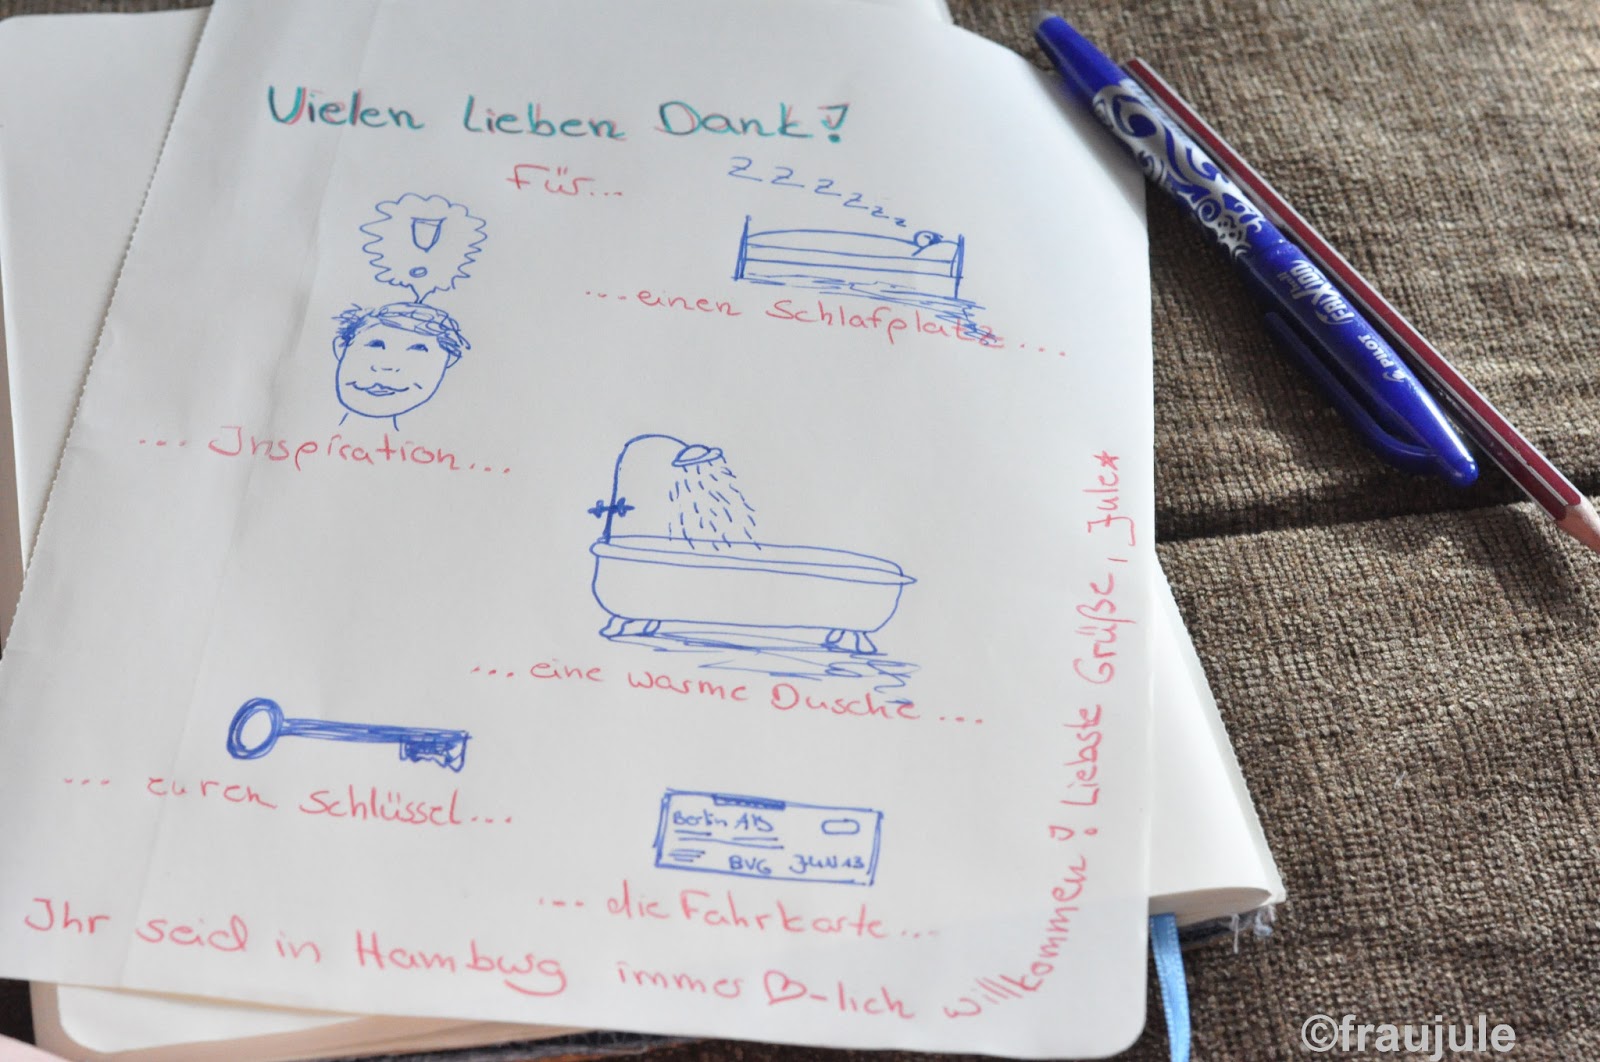 Vielen lieben Dank!
Für...
z z z z z z z
...einen Schlafplatz...
... Inspiration...
...eine warme Dusche...
... euren Schlüssel...
Berlin AB
BVG JUN 13
... die Fahrkarte...
Ihr seid in Hamburg immer ♡-lich willkommen! Liebste Grüße, Jule*
PILOT
FRIXION
©fraujule